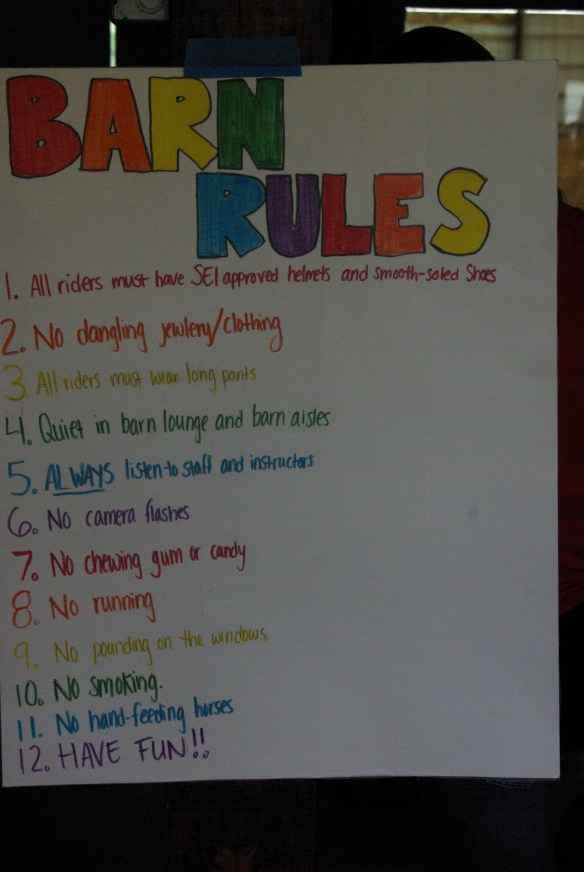 BARN
RULES
1. All riders must have SEI approved helmets and smooth-soled Shoes
2. No dangling jewlery/clothing
3 All riders must wear long pants
4. Quiet in barn lounge and barn aisles
5. ALWAYS listen to staff and instructors
6. No camera flashes
7. No chewing gum or candy
8. No running
9. No pounding on the windows
10. No smoking.
11. No hand-feeding horses
12. HAVE FUN!!